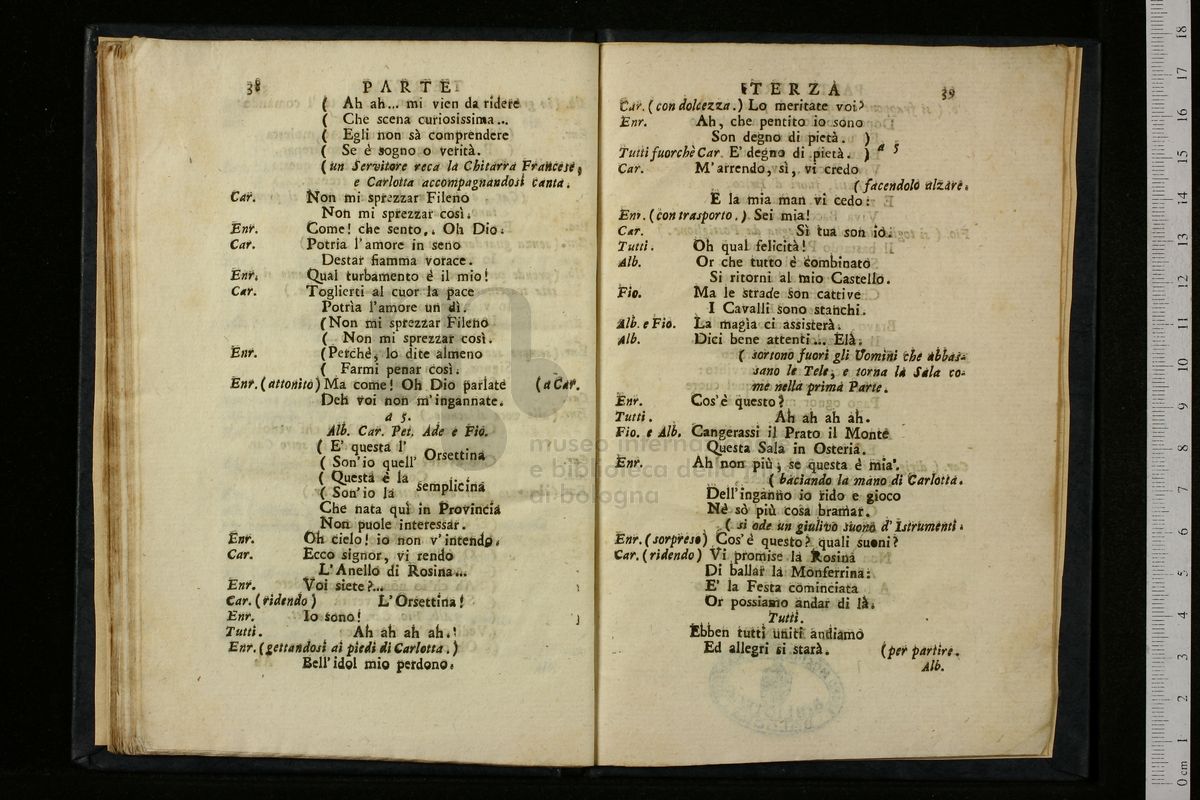 38 PARTE
( Ah ah... mi vien da ridere
( Che scena curiosissima...
( Egli non sà comprendere
( Se è sogno o verità.
(un Servitore reca la Chitarra Francese,
e Carlotta accompagnandosi canta.
Car. Non mi sprezzar Fileno
Non mi sprezzar così.
Enr. Come! che sento.. Oh Dio.
Car. Potria l'amore in seno
Destar fiamma vorace.
Enr. Qual turbamento è il mio!
Car. Toglierti al cuor la pace
Potrìa l'amore un dì.
(Non mi sprezzar Fileno
( Non mi sprezzar così.
Enr. (Perchè, lo dite almeno
( Farmi penar così.
Enr. (attonito) Ma come! Oh Dio parlate (a Car.
Deh voi non m'ingannate.
a 5.
Alb. Car. Pet. Ade e Fio.
( E' questa l'
( Son'io quell' Orsettina
( Questa è la
( Son'io la semplicina
Che nata qui in Provincia
Non puole interessar.
Enr. Oh cielo! io non v'intendo.
Car. Ecco signor, vi rendo
L'Anello di Rosina...
Enr. Voi siete?...
Car. (ridendo) L'Orsettina!
Enr. Io sono!
Tutti. Ah ah ah ah.!
Enr. (gettandosi ai piedi di Carlotta.)
Bell'idol mio perdono.
TERZA 39
Car. (con dolcezza.) Lo meritate voi?
Enr. Ah, che pentito io sono
Son degno di pietà. )
Tutti fuorchè Car. E' degno di pietà. ) a 5
Car. M'arrendo, sì, vi credo
(facendolo alzare.
E la mia man vi cedo:
Enr. (con trasporto.) Sei mia!
Car. Sì tua son io.
Tutti. Oh qual felicità!
Alb. Or che tutto è combinato
Si ritorni al mio Castello.
Fio. Ma le strade son cattive
I Cavalli sono stanchi.
Alb. e Fio. La magìa ci assisterà.
Alb. Dici bene attenti... Elà.
( sortono fuori gli Uomini che abbas-
sano le Tele, e torna la Sala co-
me nella prima Parte.
Enr. Cos'è questo?
Tutti. Ah ah ah ah.
Fio. e Alb. Cangerassi il Prato il Monte
Questa Sala in Osteria.
Enr. Ah non più, se questa è mia.
( baciando la mano di Carlotta.
Dell'inganno io rido e gioco
Nè sò più cosa bramar.
( si ode un giulivo suono d'Istrumenti.
Enr. (sorpreso) Cos'è questo? quali suoni?
Car. (ridendo) Vi promise la Rosina
Di ballar la Monferrina:
E' la Festa cominciata
Or possiamo andar di là.
Tutti.
Ebben tutti uniti andiamo
Ed allegri si starà. (per partire.
Alb.
museo interna
e biblioteca della
di bologna
0 cm 1 2 3 4 5 6 7 8 9 10 11 12 13 14 15 16 17 18